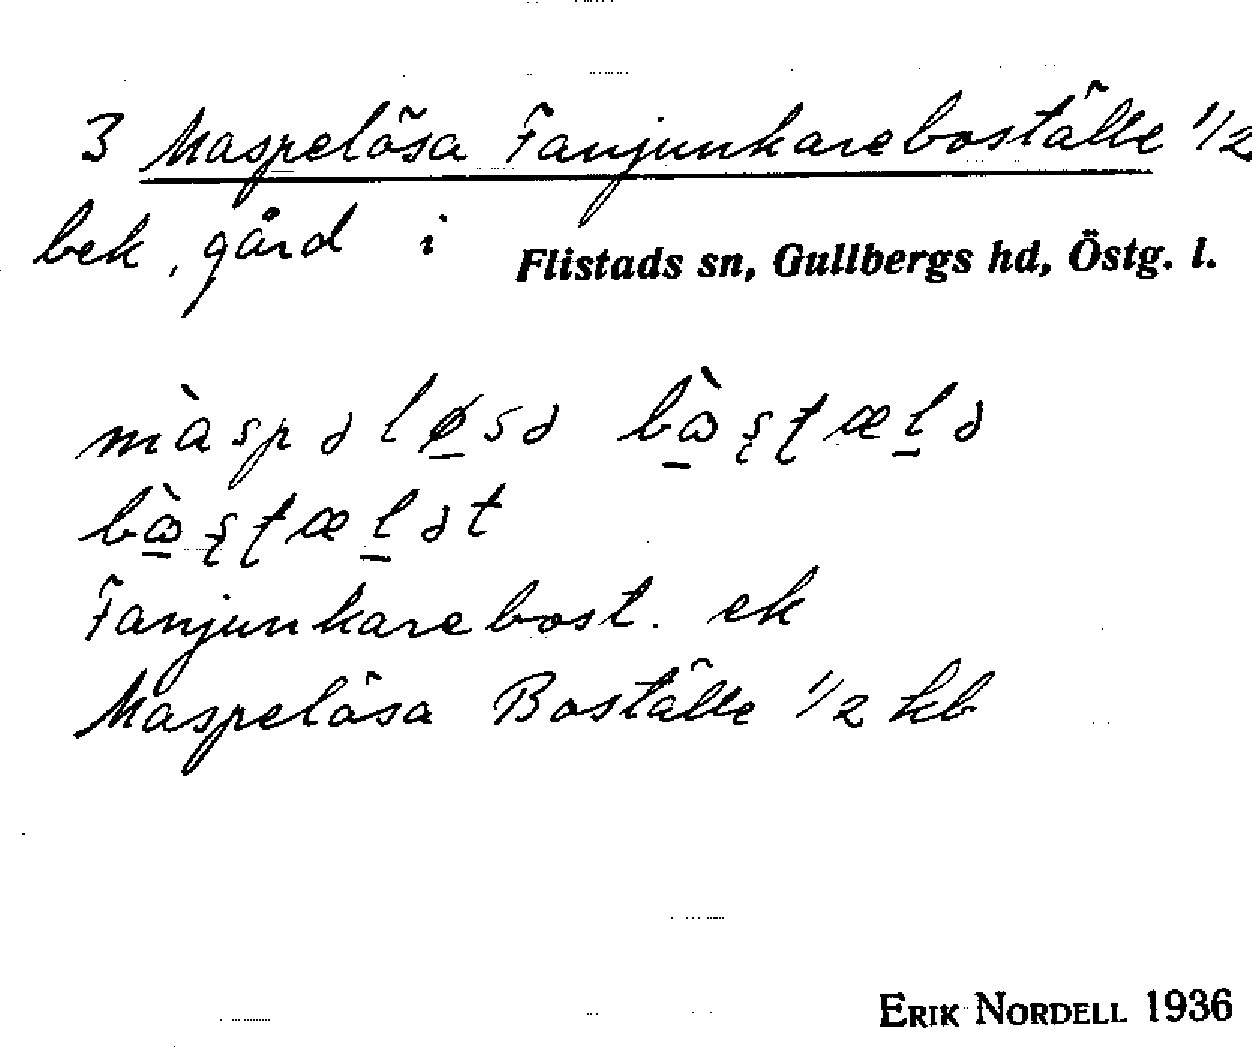 3 Maspelösa Fanjunkareboställe 1/2
bek, gård i Flistads sn, Gullbergs hd, Östg. l.
màspəløsə bàsʈæḷə
bàsʈæḷət
Fanjunkarebost. ek
Maspelösa Boställe 1/2 hb
ERIK NORDELL 1936